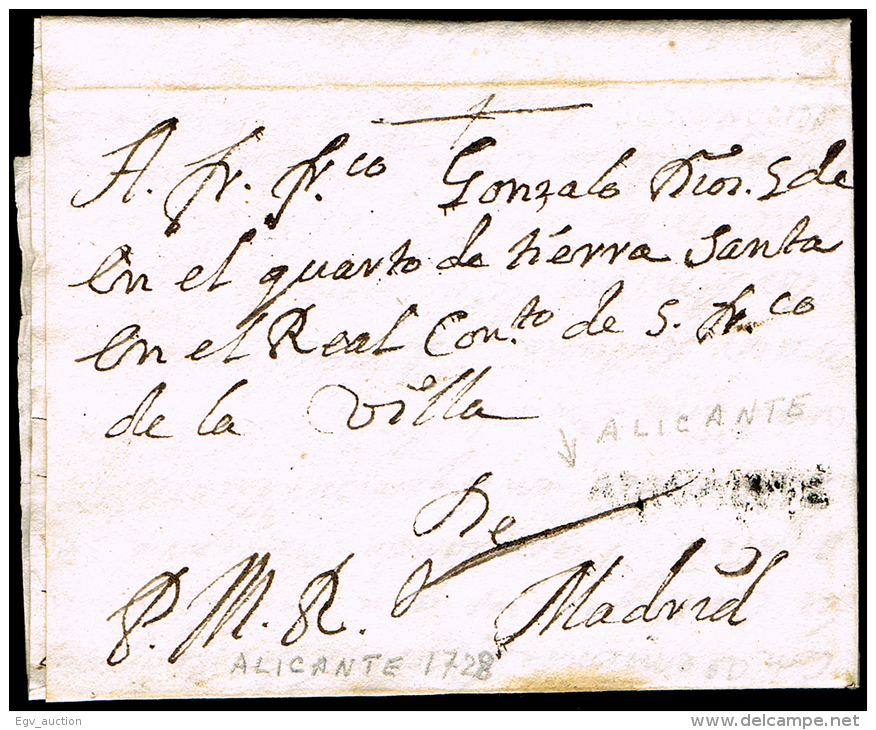 A. fr. fr.co Gonzalo
en el quarto de tierra Santa
en el Real Con.to de S. fr.co
de la Villa
ALICANTE
ALICANTE
P. M. R. Madrid
ALICANTE 1728
Egv_auction
delcampe.net